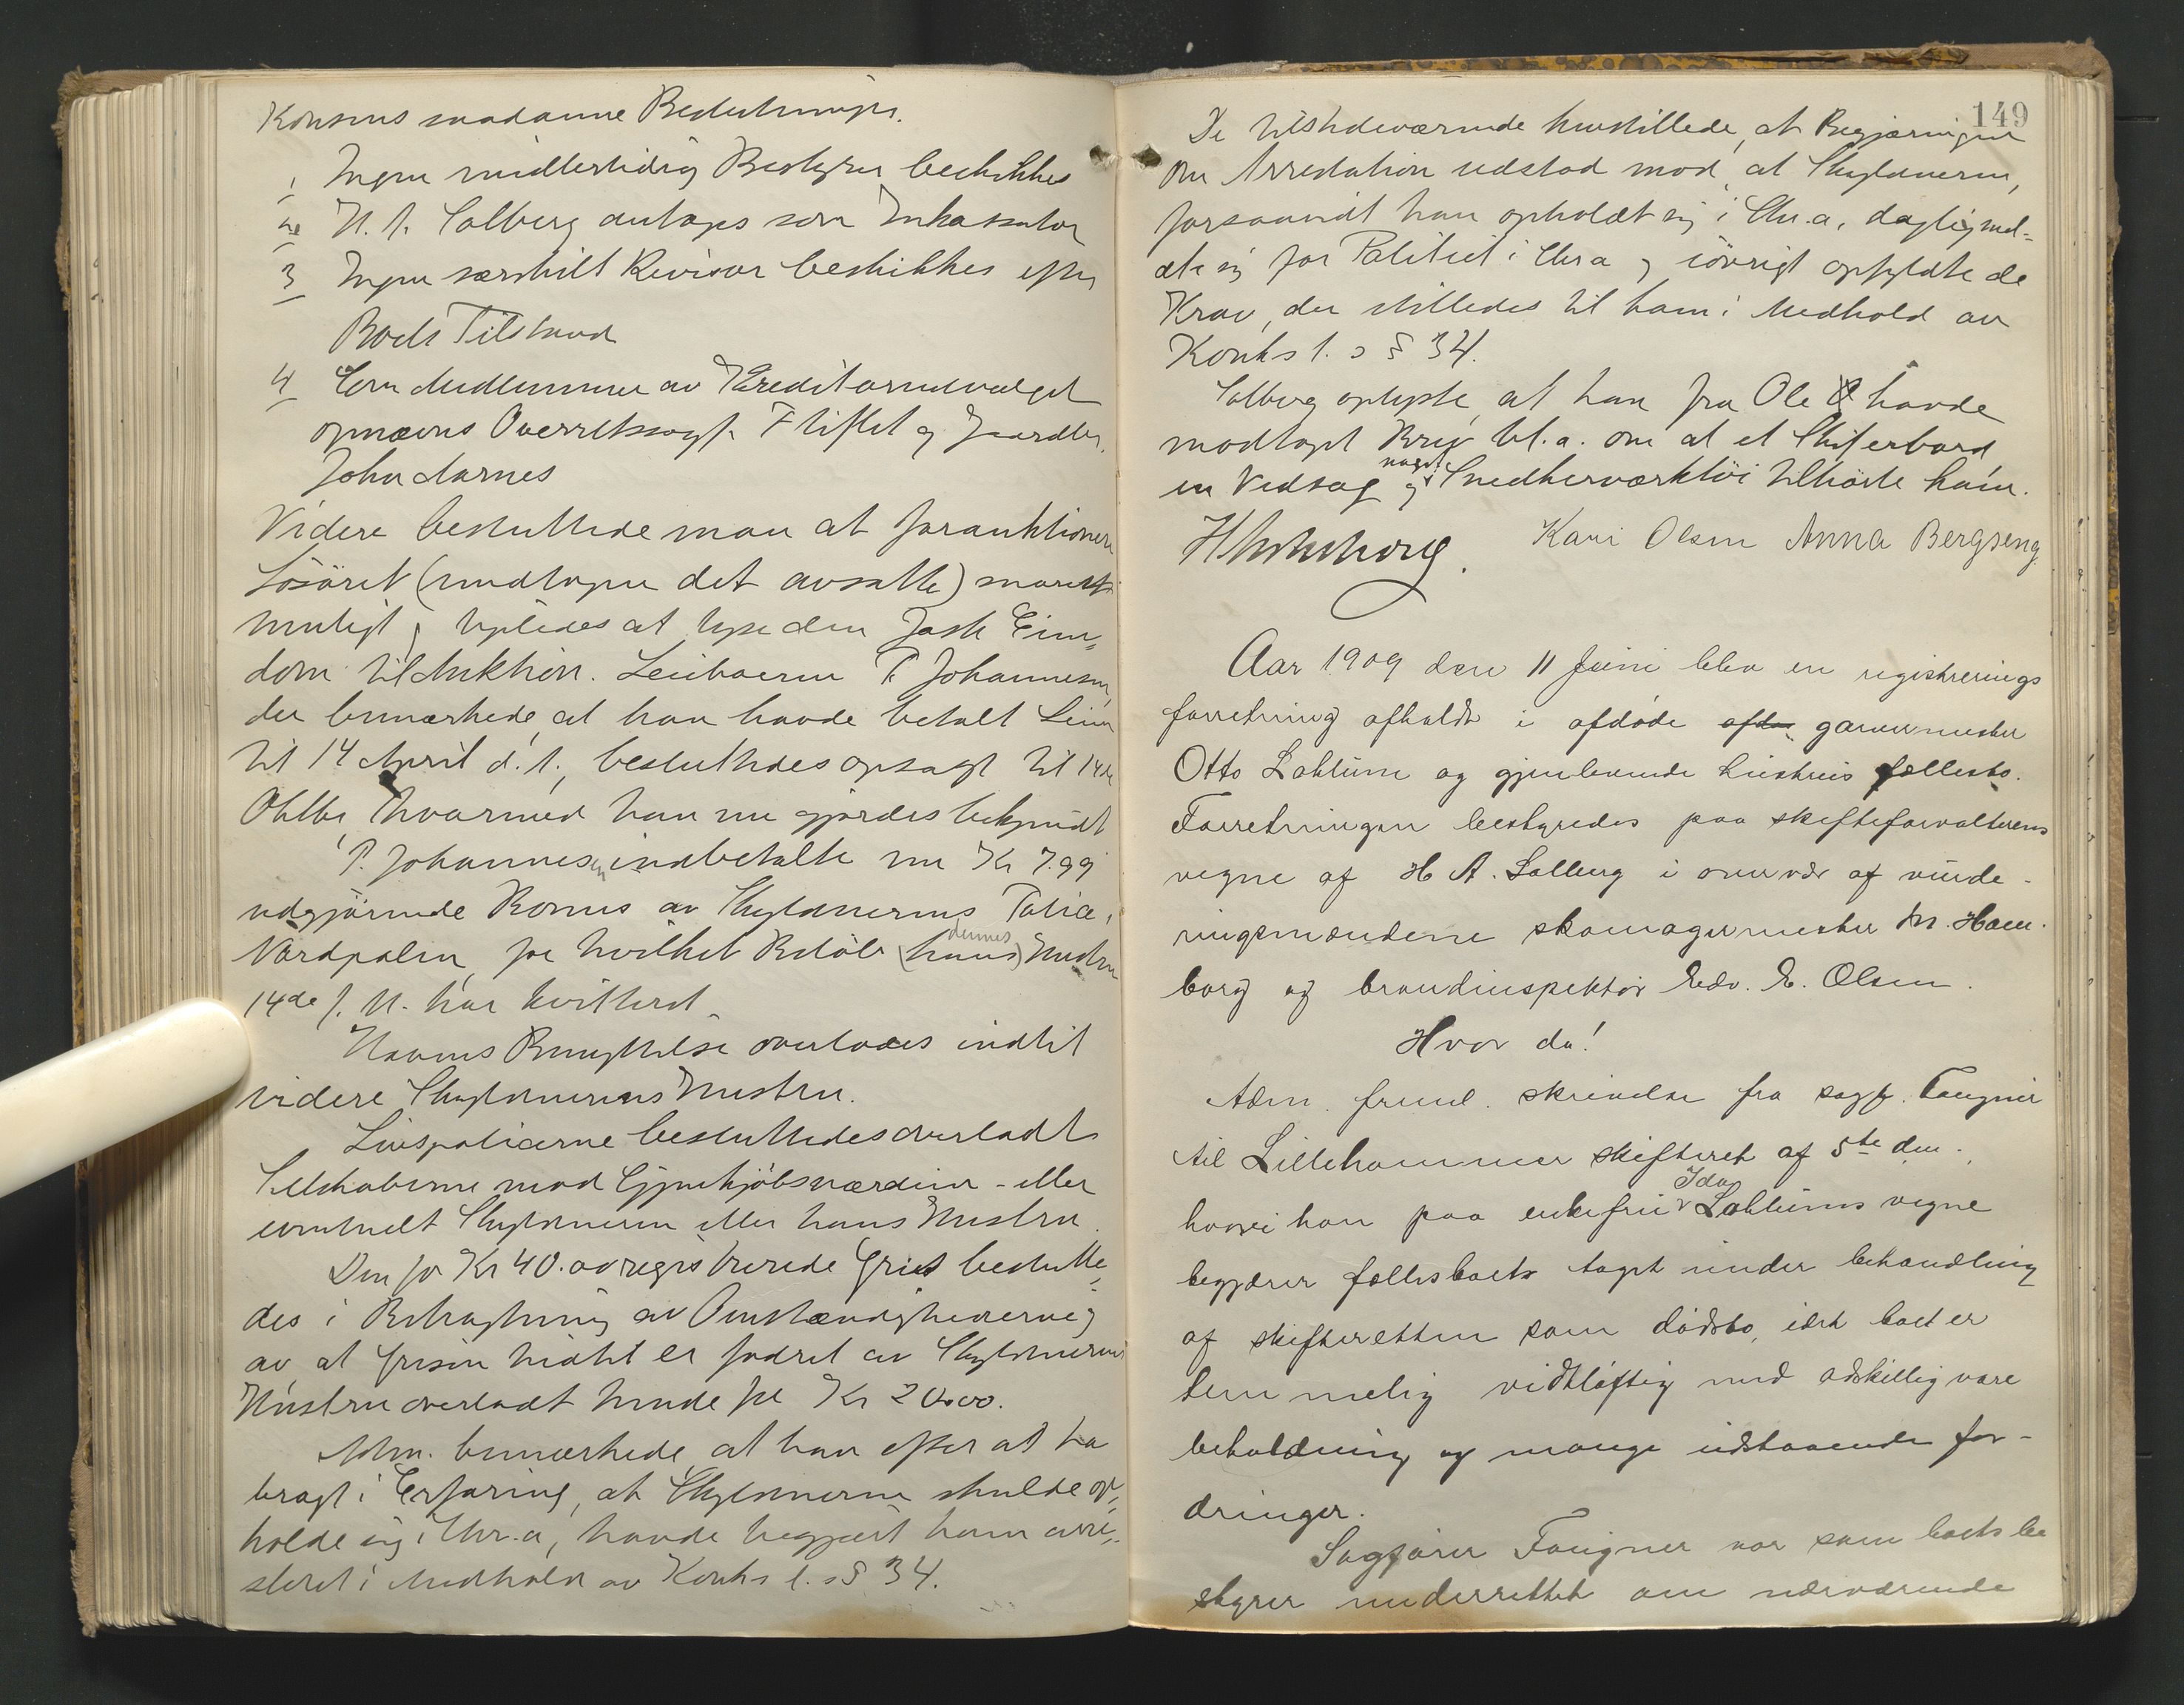 Konsens saadanne Beslutninger.
1 Ingen midlertidig Bestyrer beskikkes
2 H. A. Solberg antages som Inkassator
3 Ingen særskilt Revisor beskikkes efter
Boets Tilstand
4 Som Medlemmer av Kreditorudvalget
opnævnes Overretssagf. Fliflet og Gaardbr.
John Aarnes
Videre besluttede man at forauktionere
Løsøret (undtagen det avsatte) snarest
muligt og ligeledes at lyse den faste Eien-
dom til Auktion. Leieboeren P. Johannesen,
der bemærkede, at han havde betalt Leien
til 14 April d. A., besluttedes opsagt til 14de
Oktbr, hvormed han nu gjordes bekjendt
P. Johannesen indbetalte nu Kr 7.99
udgjørende Bonus av Skyldnerens Police i
Nordpolen, for hvilket Beløb (hans) dennes Hustru
14de f. M. har kvitteret
Havens Benyttelse overlodes indtil
videre Skyldnerens Hustru.
Livspolicerne besluttedes overladt
Selskaberne mod Gjenkjøbsværdien - eller
eventuelt Skyldneren eller hans Hustru.
Den for Kr 40. avregistrerede Gris beslutte-
des i Betragtning av Omstændighederne og
av at Grisen hidtil er fodret av Skyldnerens
Hustru overladt hende for Kr 20.00.
Adm. bemærkede, at han efter at ha
bragt i Erfaring, at Skyldneren skulde op-
holde sig i Chr.a, havde begjært ham arre-
steret i Medhold av Konks l.s § 34.
149
De tilstedeværende henstillede, at Begjæringen
om Arrestation udstod mod, at Skyldneren,
forsaavidt han opholdt sig i Chr.a, daglig meld-
ete sig for Politiet i Chr.a og iøvrigt opfyldte de
Krav, der stilledes til ham i Medhold av
Konks l.s § 34.
Solberg oplyste, at han fra Ole havde
modtaget Brev bl.a. om at et Skiferbord
en Vedsag og noget Snedkerværktøi tilhørte ham.
Kari Olsen Anna Bergseng
Aar 1909 den 11 Juni blev en registrerings
forretning afholdt i afdøde garvermester
Otto Lohlums og gjenlevende hustrus fællesbo.
Forretningen bestyredes paa skifteforvalterens
vegne af H A. Solberg i overvær af vurde-
ringsmændene skomagermester M. Ham-
borg og brandinspektør Edv. E. Olsen.
Hvor da!
Adm. freml. skrivelse fra sagf. Faugner
til Lillehammer skifteret af 5te dm.
hvori han paa enkefru Ida Lohlums vegne
begjærer fællesboets taget under behandling
af skifteretten som dødsbo, idet boet er
temmelig vidtløftig med adskillig vare
beholdning og mange udstaaende for-
dringer.
Sagfører Faugner var som boets be
styrer underrettet om nærværende